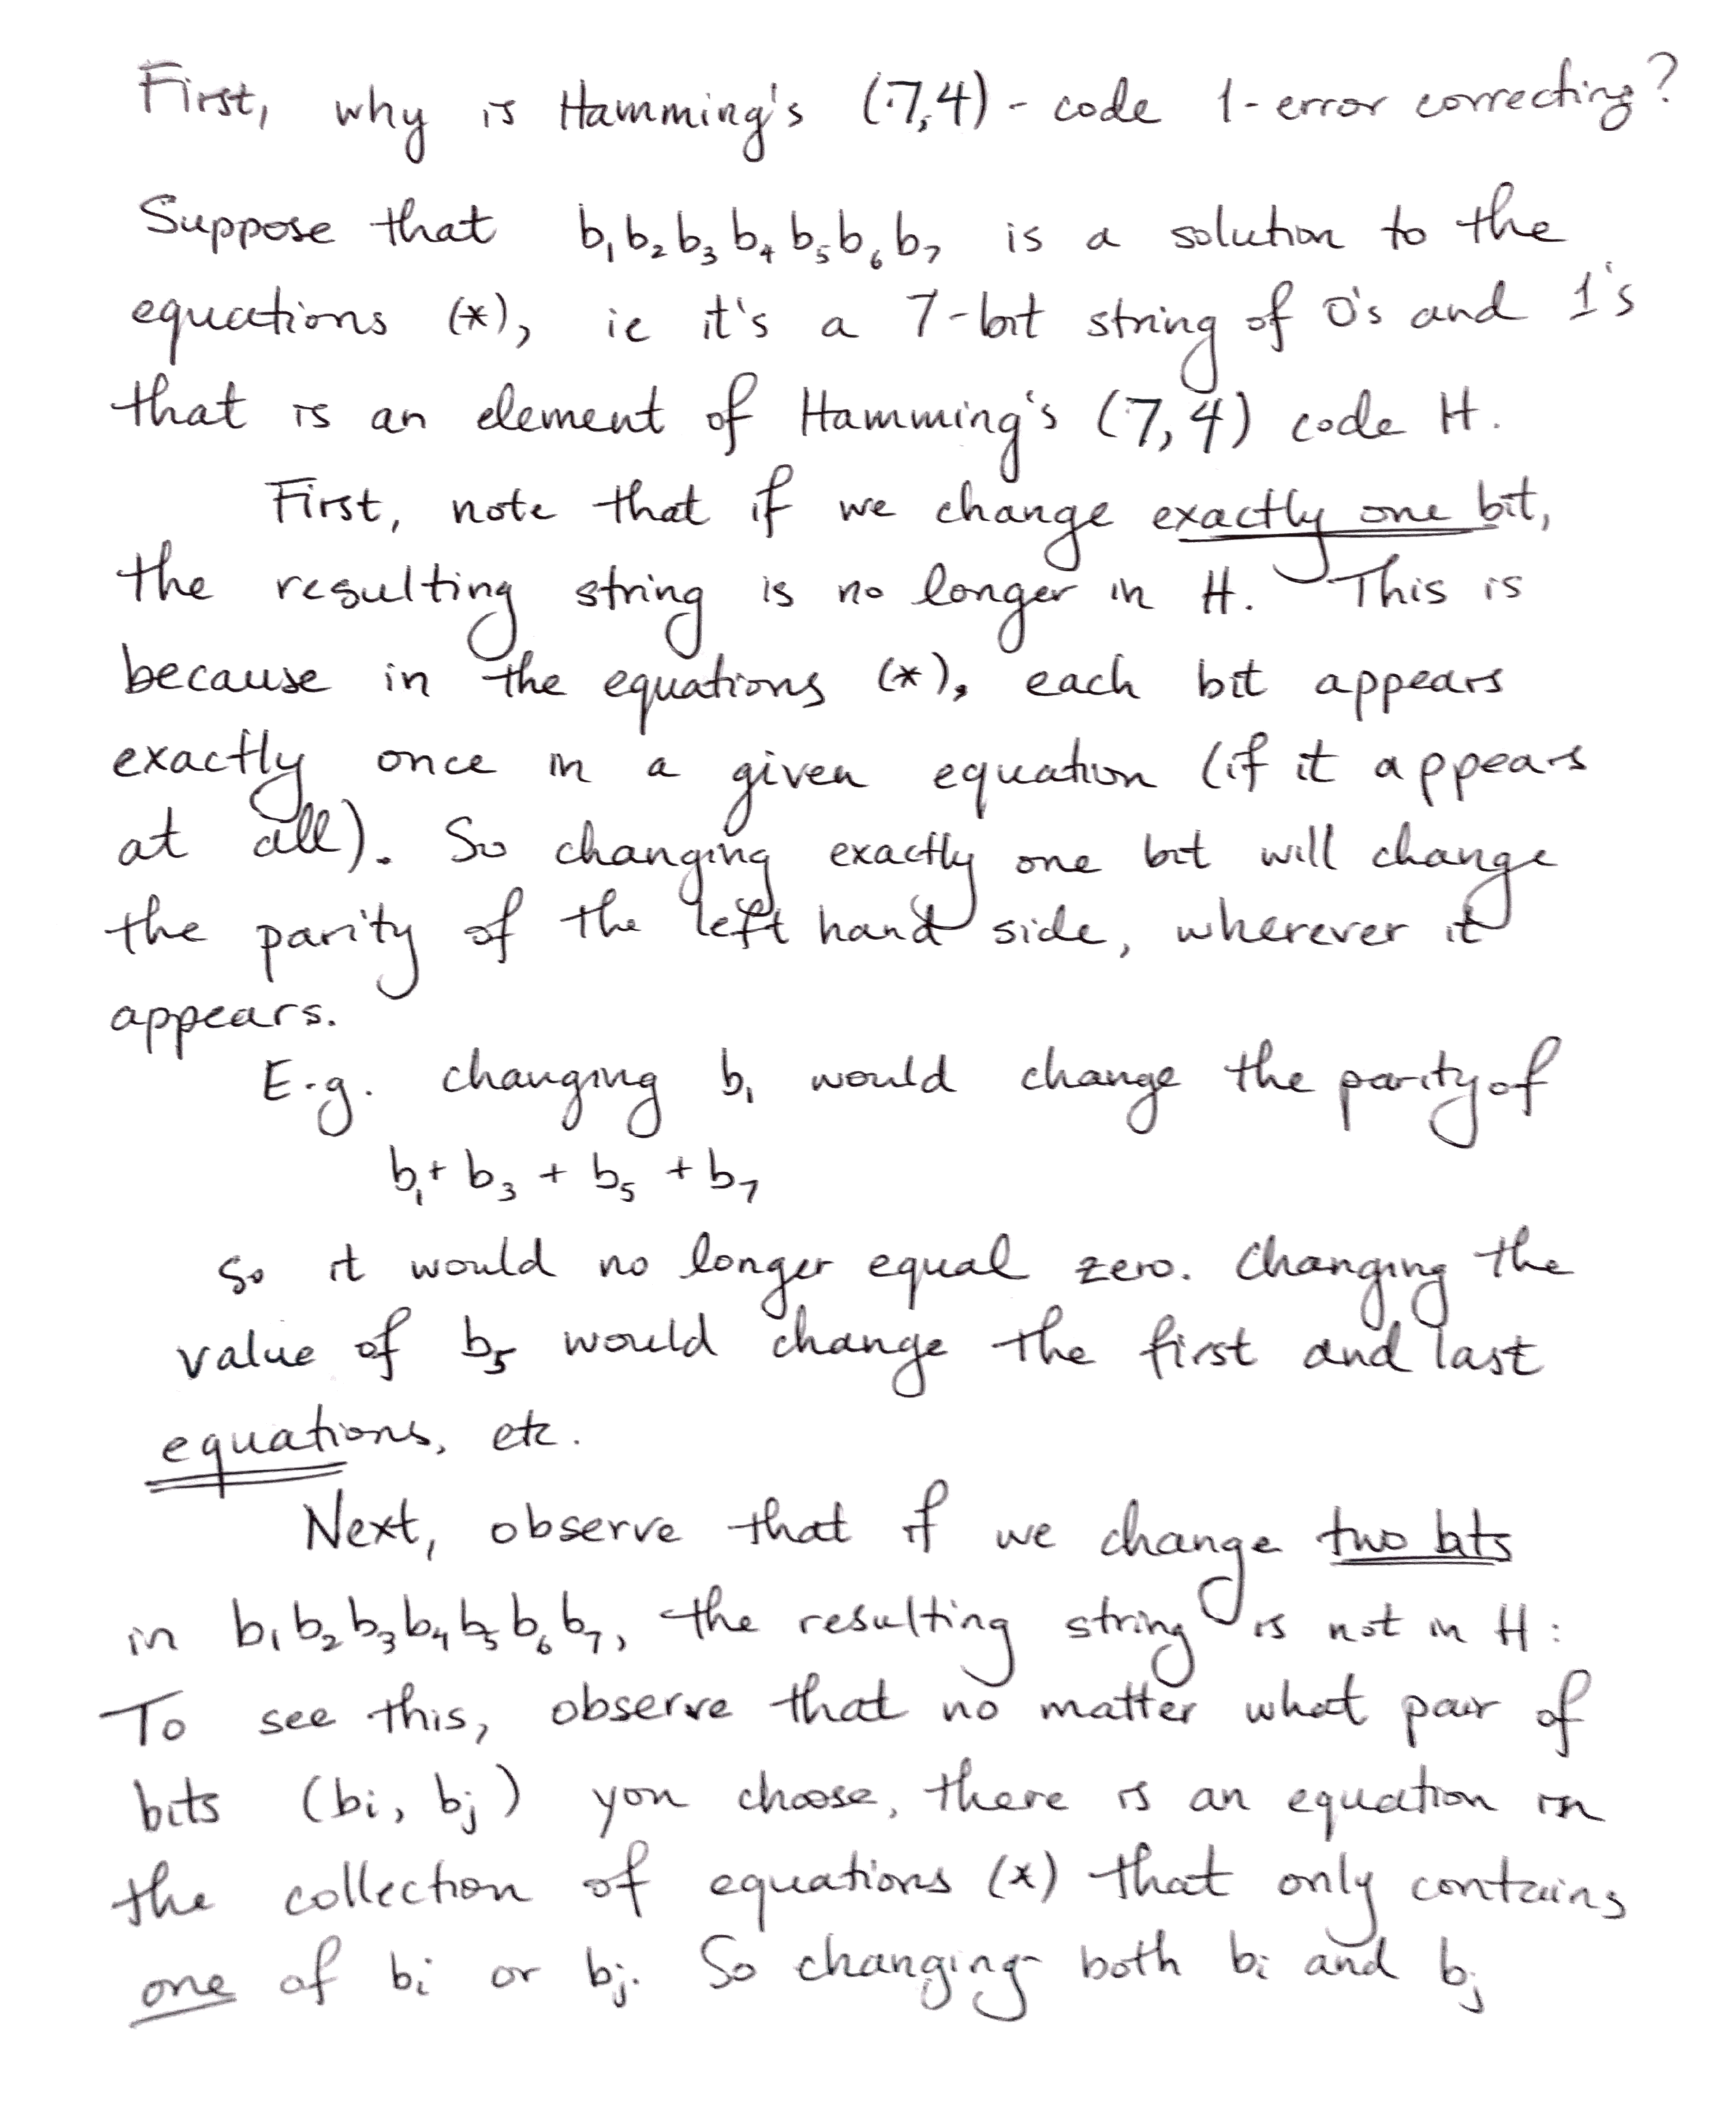 First, why is Hamming's (7,4) - code 1-error correcting?
Suppose that b₁b₂b₃b₄b₅b₆b₇ is a solution to the
equations (*), ie it's a 7-bit string of 0's and 1's
that is an element of Hamming's (7,4) code H.
First, note that if we change exactly one bit,
the resulting string is no longer in H. This is
because in the equations (*), each bit appears
exactly once in a given equation (if it appears
at all). So changing exactly one bit will change
the parity of the left hand side, wherever it
appears.
E.g. changing b₁ would change the parity of
b₁ + b₃ + b₅ + b₇
so it would no longer equal zero. Changing the
value of b₅ would change the first and last
equations, etc.
Next, observe that if we change two bits
in b₁b₂b₃b₄b₅b₆b₇, the resulting string is not in H:
To see this, observe that no matter what pair of
bits (bi, bj) you choose, there is an equation in
the collection of equations (*) that only contains
one of bi or bj. So changing both bi and bj